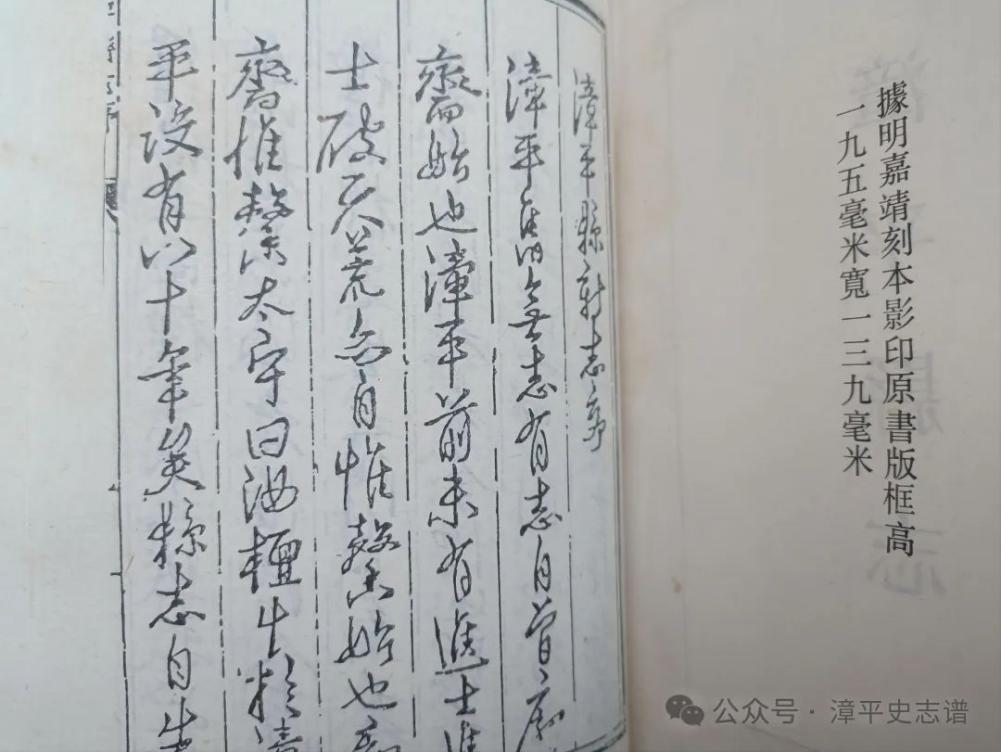 據明嘉靖刻本影印原書版框高
一九五毫米寬一三九毫米
漳平縣新志序
漳平舊無志有志自曾
齋始也漳平前未有進士進
士破天荒則自惟馨始也
齋惟馨太守曰
平設有八十年矣縣志自
公众号 · 漳平史志谱